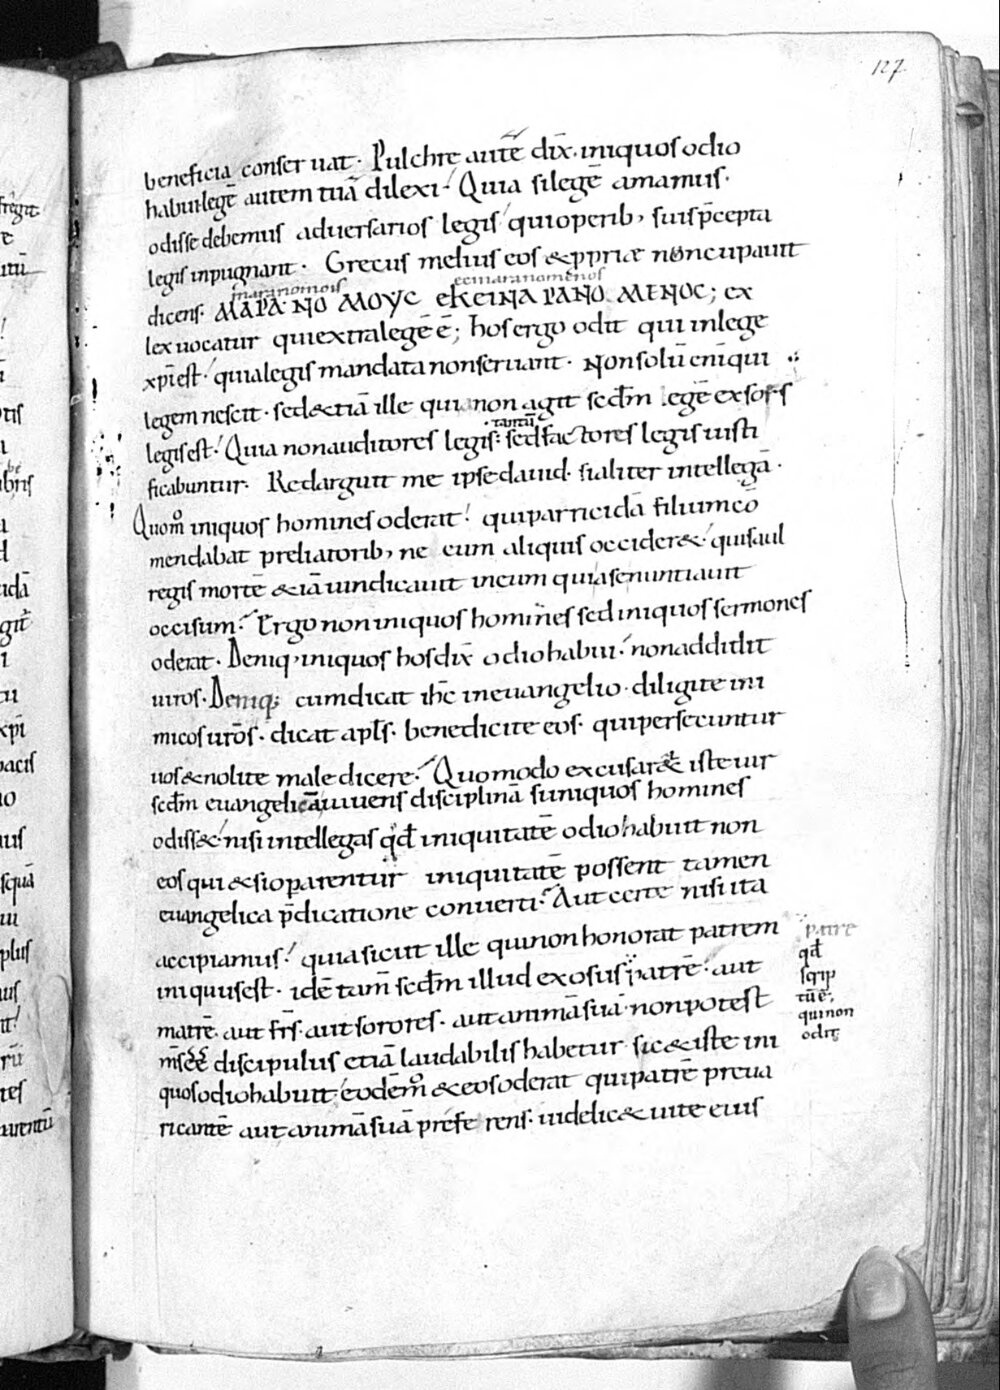 127
beneficia conseruat· Pulchre autē dix̄· iniquos odio
habui· legē autem tuā dilexi· Quia si legē amamus·
odisse debemus aduersarios legis· qui operib; suis p̄cepta
legis inpugnant· Grecus melius eos & ppriæ noncupauit
maranomois ecmaranomenos
dicens· ΜΑΡΑ·ΝΟ ΜΟΥC ΕΚΕΙΝΑ ΡΑΝΟ ΜΕΝΟC; ex
lex uocatur qui extra legē ē; hos ergo odit qui in lege
xp̄i est· quia legis mandata non seruant· Non solū enī qui
legem nescit· sed & tiā ille qui non agit secd̄m legē exsors
tantū
legis est· Quia non auditores legis: sed factores legis iusti
ficabuntur· Redarguit me ipse dauid· si aliter intellegā·
Quom̊ iniquos homines oderat· qui parricidā filium cō
mendabat preliatorib; ne eum aliquis occider&· qui saul
regis mortē & iā uindicauit in eum qui a se nuntiauit
occisum· Ergo non iniquos homines sed iniquos sermones
oderat· Deniq; iniquos hos dix̄ odio habui· non addidit
uiros· Deniq; cum dicat ih̄c in euangelio· diligite ini
micos uros̄· dicat apl̄s· benedicite eos· qui persecuntur
uos & nolite maledicere· Quomodo excusar& iste uir
secd̄m euangelicā uiuens disciplinā si iniquos homines
odiss&· nisi intellegas qd̄ iniquitatē odio habuit non
eos qui & si operentur iniquitatē possent tamen
euangelica p̄dicatione conuerti· Aut certe nisi ita
accipiamus· quia sicut ille qui non honorat patrem
iniquus est· idē tam̄ secd̄m illud exosus patrē· aut
matrē· aut fr̄s· aut sorores· aut animā suā· non potest
discipulus etiā laudabilis habetur· sic & iste ini
quos odio habuit· eodēm̊ & eos oderat qui patrē preua
ricantē aut animā suā preferens· uidelic& uite eius
patre
qd̄
scrip
tū ē;
qui non
odit